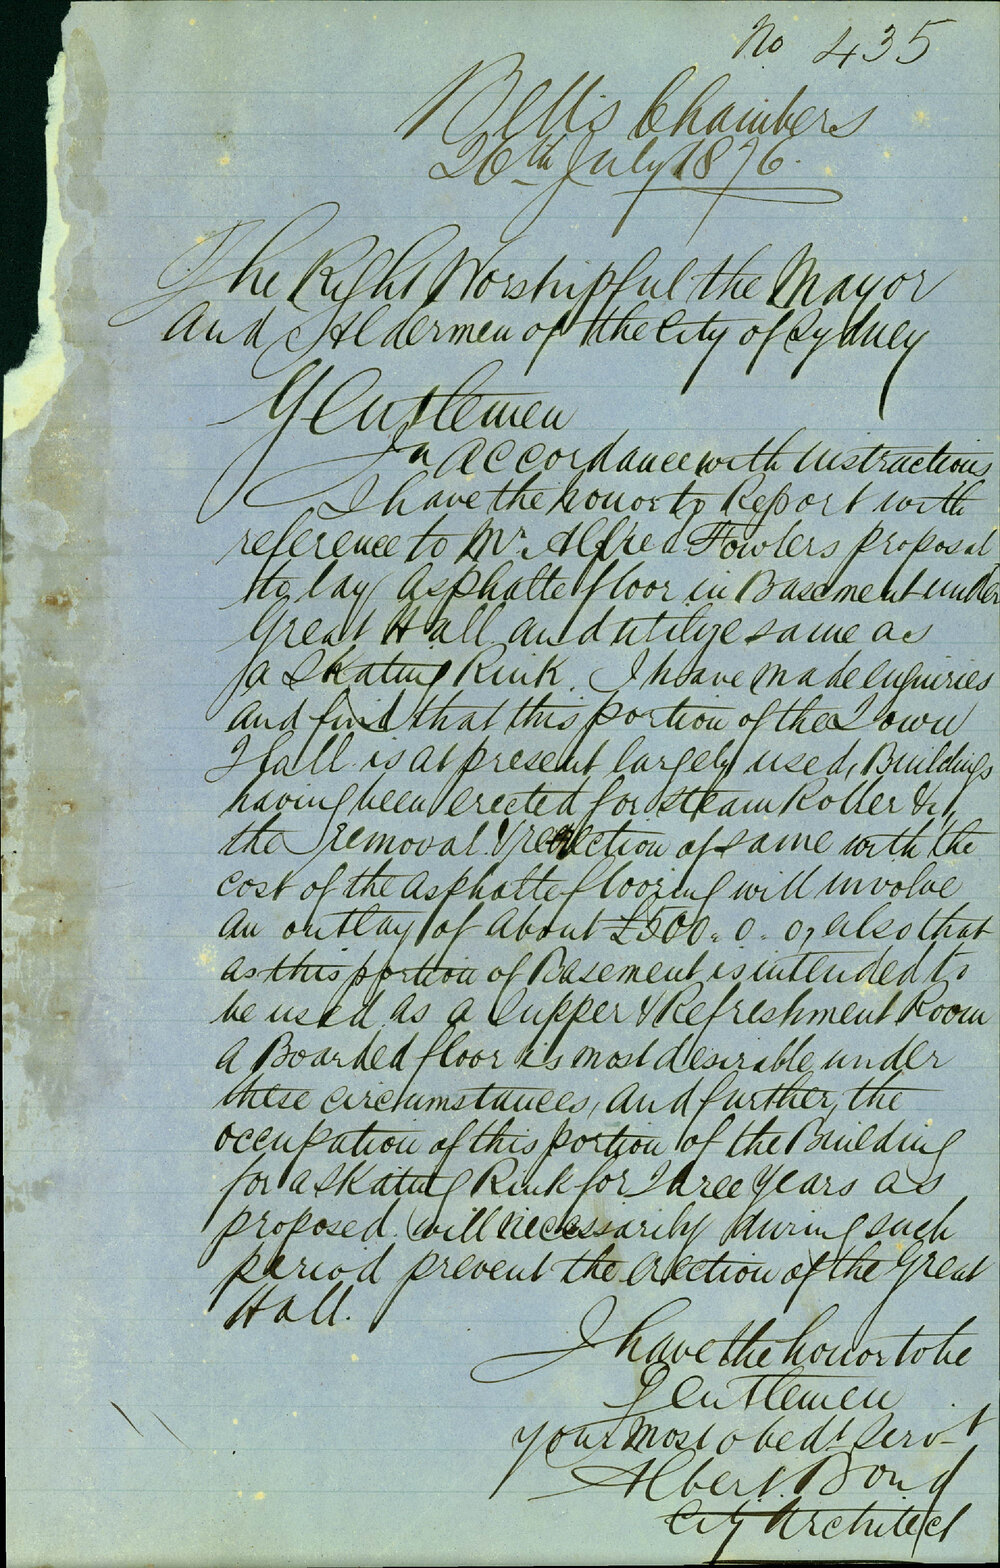 No 435
Bell's Chambers
26th July 1876.
The Right Worshipful the Mayor
and Aldermen of the City of Sydney
Gentlemen
In accordance with instructions
I have the honor to Report with
reference to Mr. Alfred Fowlers proposal
to lay Asphalte floor in Basement under
Great Hall and utilize same as
a Skating Rink. I have made enquiries
and find that this portion of the Town
Hall is at present largely used, Buildings
having been erected for Steam Roller &c,
the removal & reerection of same with the
cost of the asphalte flooring will involve
an outlay of about £500. 0. 0, also that
as this portion of Basement is intended to
be used as a Supper & Refreshment Room
a Boarded floor is most desirable under
these circumstances, and further, the
occupation of this portion of the Building
for a Skating Rink for Three Years as
proposed will necessarily during such
period prevent the erection of the Great
Hall.
I have the honor to be
Gentlemen
Your Most obedt. Servt
Albert Bond
City Architect